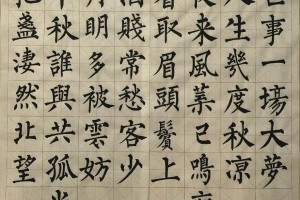 事一場大夢
人生幾度秋涼
来風葉已鳴
看取眉頭鬢上
酒賤常愁客少
月明多被雲妨
秋誰與共孤
把盞淒然北望